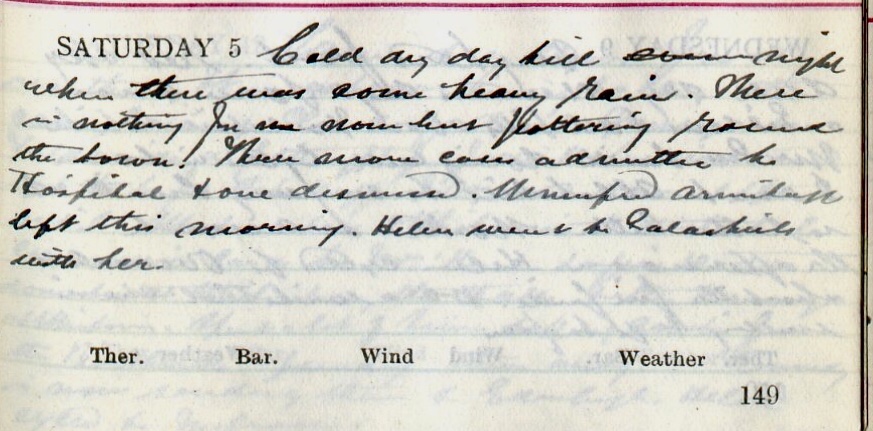 SATURDAY 5 Cold dry day till even night
when there was some heavy rain. There
is nothing for me now but pottering round
the town. Three more cases admitted to
Hospital & one dismissed. Winnifred Armitage
left this morning. Helen went to Galashiels
with her.
Ther. Bar. Wind Weather
149